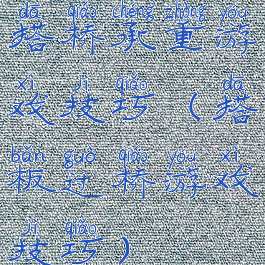 dā qiáo chéng zhòng yóu
搭桥承重游
xì jì qiǎo dā
戏技巧(搭
bǎn guò qiáo yóu xì
板过桥游戏
jì qiǎo
技巧)